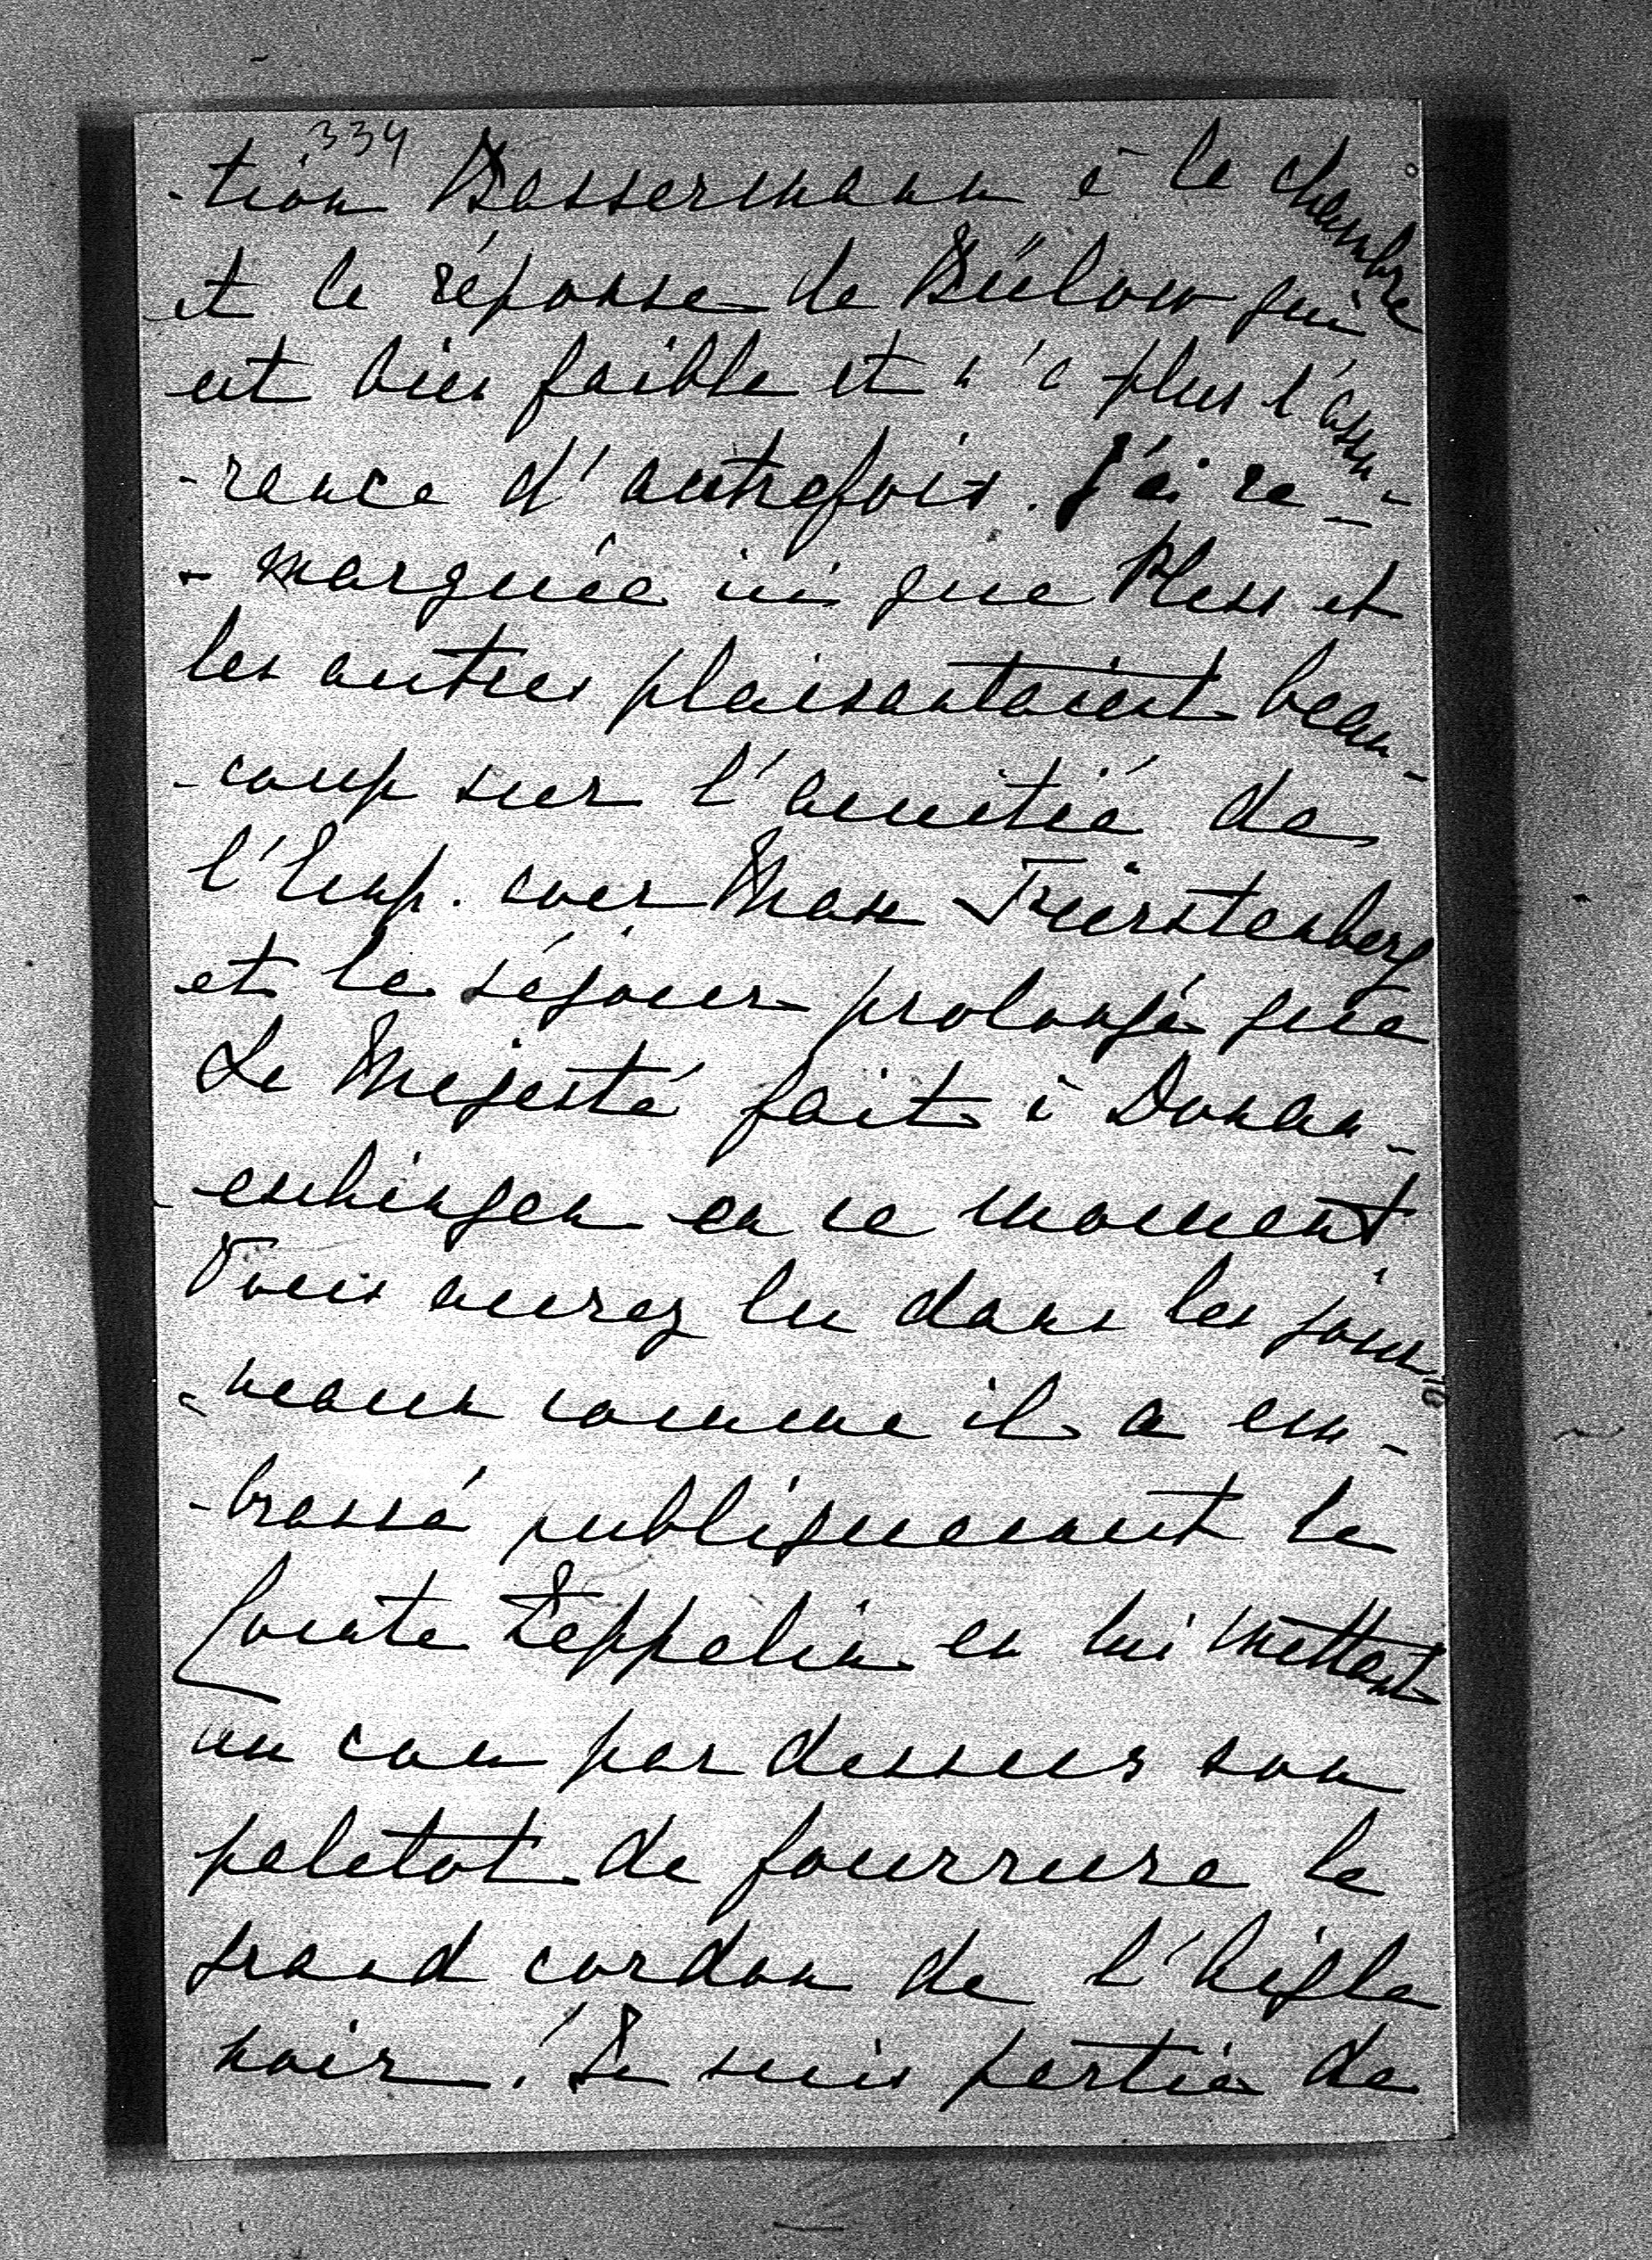 334
-tion Bassermann à la chambre
et la réponse de Bülow qui
est bien faible et n'a plus l'assu-
-rance d'autrefois. J'ai re-
-marquée ici que Pless et
les autres plaisantaient beau-
-coup sur l'amitié de
l'Emp. avec Max Fürstenberg
et le séjour prolongé que
Sa Majesté fait à Donau-
-eschingen en ce moment
Vous aurez lu dans les jour-
-neaux comme il a em-
-brassé publiquement le
Comte Zeppelin en lui mettant
au cou par dessus son
paletot de fourrure le
grand cordon de l'Aigle
noir! Je suis partie de